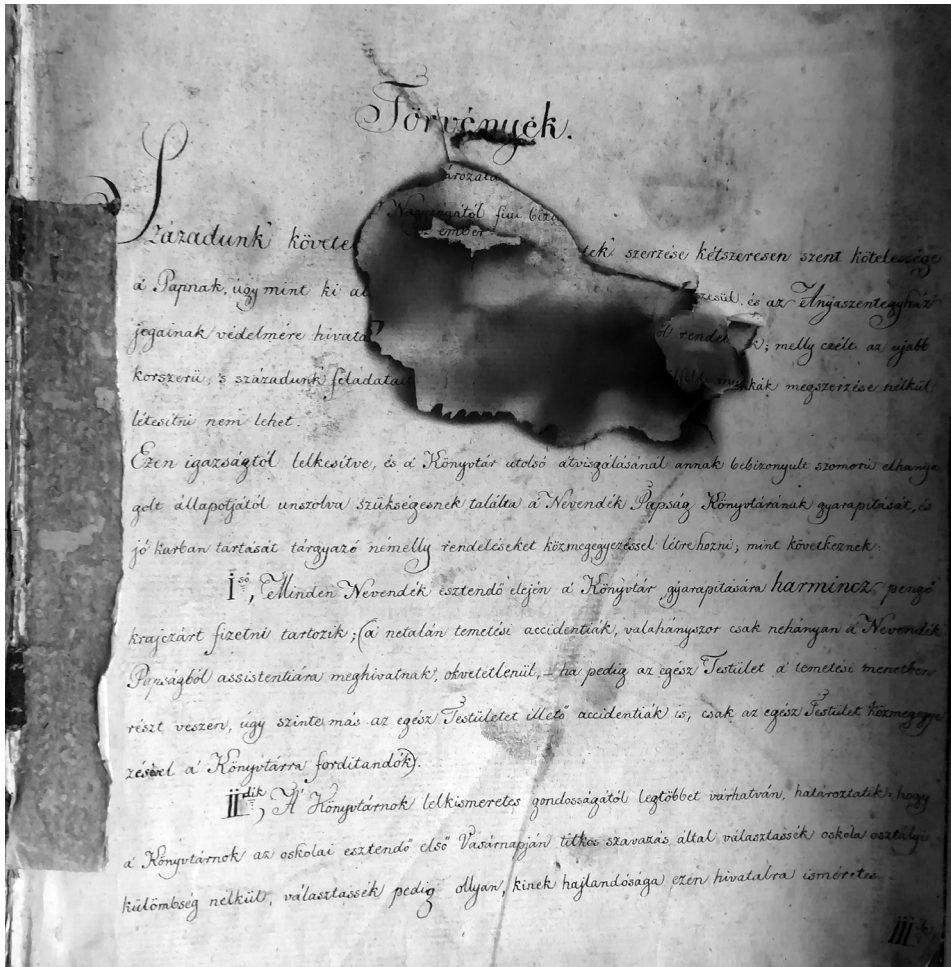 Törvények.
ározata
Nagyságától fiui biza
ember
Századunk követe tek szerzése kétszeresen szent kötelessége
á Papnak, úgy mint ki a és az Anyaszentegyház
jogainak védelmére hivata ol rende k; melly czélt az ujabb
korszerü, 's századunk feladatai kák megszerzése nélkül
létesitni nem lehet.
Ezen igazságtól lelkesitve, és á Könyvtár utolsó átvisgálásánál annak bebizonyult szomorú elhanya
golt állapotjától unszolva szükségesnek találta á Nevendék Papság Könyvtárának gyarapitását, és
jó karban tartását tárgyazó némelly rendeléseket közmegegyezéssel létrehozni; mint következnek:
I.ső, Minden Nevendék esztendő elején á Könyvtár gyarapitására harmincz pengő
krajczárt fizetni tartozik; (a netalán temetési accidentiák, valahányszor csak nehányan á Nevendék
Papságból assistentiára meghivatnak, okvetetlenül, – ha pedig az egész Testület á temetési menetben
részt veszen, úgy szinte más az egész Testületet illető accidentiák is, csak az egész Testület közmegegye
zésével á Könyvtárra forditandók).
II.dik, A' Könyvtárnok lelkismeretes gondosságától legtöbbet várhatván, határoztatik: hogy
á Könyvtárnok az oskolai esztendő első Vasárnapján titkos szavazás által választassék oskola osztálya
külömbség nélkül, választassék pedig ollyan, kinek hajlandósága ezen hivatalra ismeretes.
III